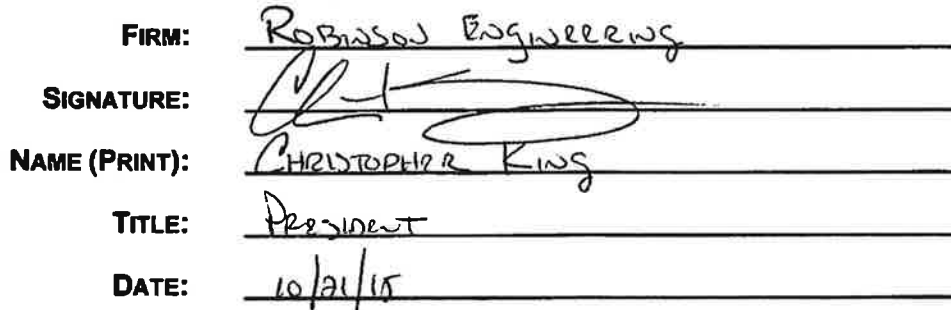 FIRM: ROBINSON ENGINEERING
SIGNATURE:
NAME (PRINT): CHRISTOPHER KING
TITLE: PRESIDENT
DATE: 10/21/15